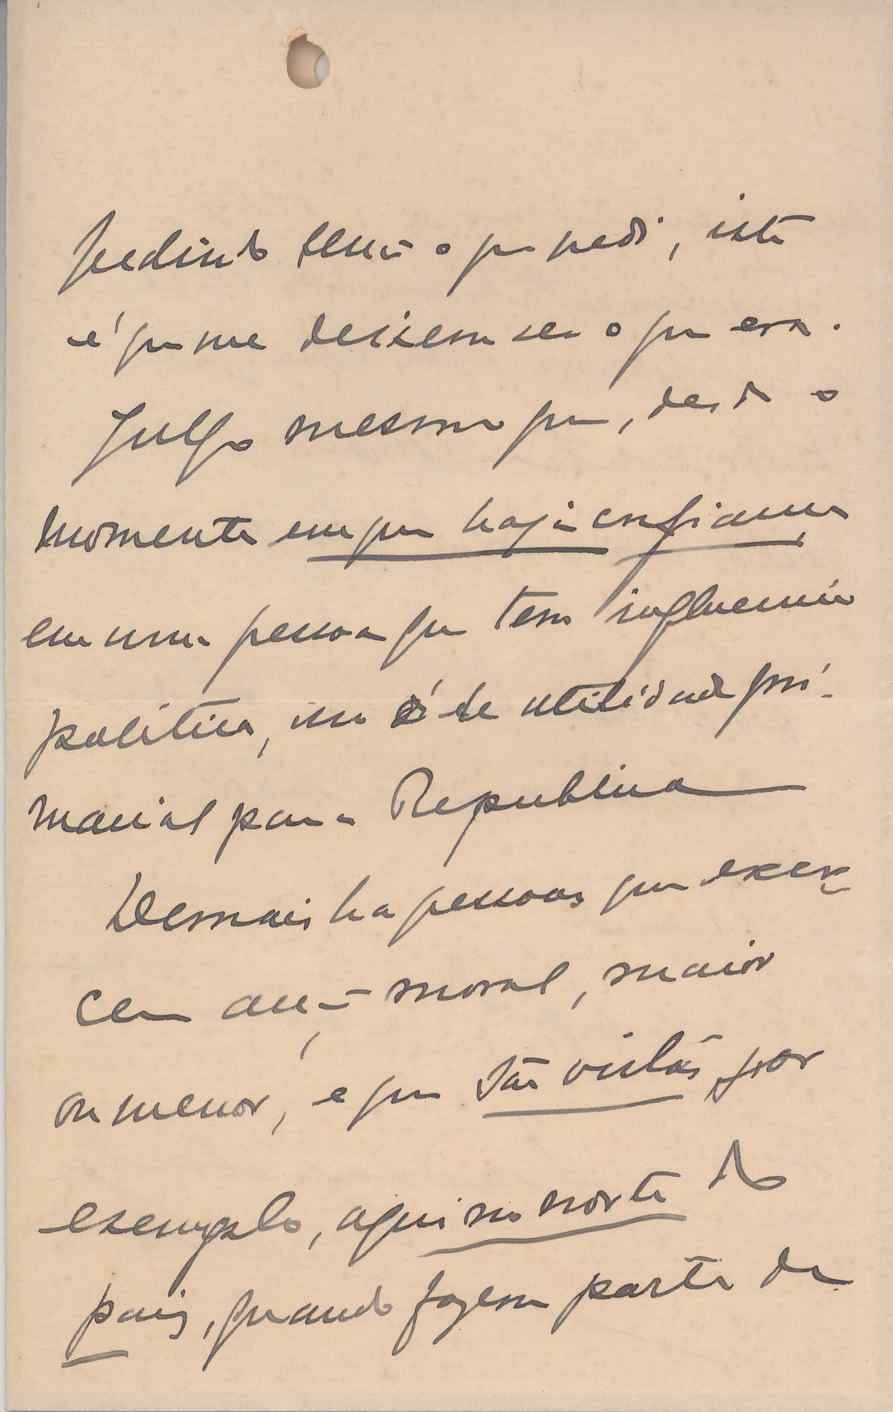 pedindo senão o que pedi, isto
é que me deixem ser o que era.
Julgo mesmo que, desde o
momento em que haja confiança
em uma pessoa que tem influencia
politica, isso é de utilidade pri-
macial para a Republica
Demais ha pessoas que exer-
cem acção moral, maior
ou menor, e que são vistas, por
exemplo, aqui no norte do
paiz, quando fazem parte da